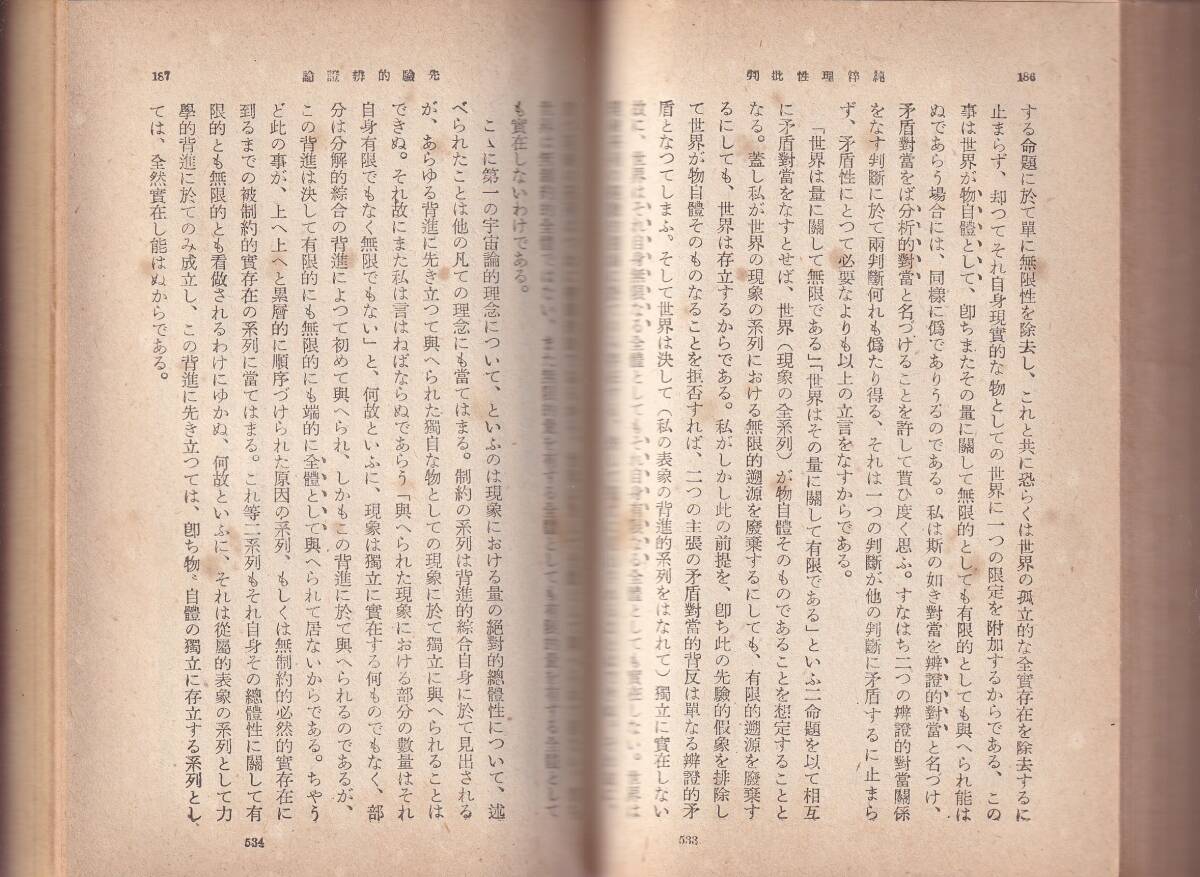 186
純粹理性批判
する命題に於て單に無限性を除去し、これと共に恐らくは世界の孤立的な全實存在を除去するに
止まらず、却つてそれ自身現實的な物としての世界に一つの限定を附加するからである、この
事は世界が物自體として、卽ちまたその量に關して無限的としても有限的としても與へられ能は
ぬであらう場合には、同樣に僞でありうるのである。私は斯の如き對當を辨證的對當と名づけ、
矛盾對當をば分析的對當と名づけることを許して貰ひ度く思ふ。すなはち二つの辨證的對當關係
をなす判斷に於て兩判斷何れも僞たり得る、それは一つの判斷が他の判斷に矛盾するに止まら
ず、矛盾性にとつて必要なよりも以上の立言をなすからである。
「世界は量に關して無限である」「世界はその量に關して有限である」といふ二命題を以て相互
に矛盾對當をなすとせば、世界(現象の全系列)が物自體そのものであることを想定することと
なる。蓋し私が世界の現象の系列における無限的遡源を廢棄するにしても、有限的遡源を廢棄す
るにしても、世界は存立するからである。私がしかし此の前提を、卽ち此の先驗的假象を排除し
て世界が物自體そのものなることを拒否すれば、二つの主張の矛盾對當的背反は單なる辨證的矛
盾となつてしまふ。そして世界は決して(私の表象の背進的系列をはなれて)獨立に實在しない
故に、世界はそれ自身無限なる全體としてもそれ自身有限なる全體としても實在しない。世界は
533
187
先驗的辨證論
も實在しないわけである。
こゝに第一の宇宙論的理念について、といふのは現象における量の絕對的總體性について、述
べられたことは他の凡ての理念にも當てはまる。制約の系列は背進的綜合自身に於て見出される
が、あらゆる背進に先き立つて與へられた獨自な物としての現象に於て獨立に與へられることは
できぬ。それ故にまた私は言はねばならぬであらう「與へられた現象における部分の數量はそれ
自身有限でもなく無限でもない」と、何故といふに、現象は獨立に實在する何ものでもなく、部
分は分解的綜合の背進によつて初めて與へられ、しかもこの背進に於て與へられるのであるが、
この背進は決して有限的にも無限的にも端的に全體として與へられて居ないからである。ちやう
ど此の事が、上へ上へと累層的に順序づけられた原因の系列、もしくは無制約的必然的實存在に
到るまでの被制約的實存在の系列に當てはまる。これ等二系列もそれ自身その總體性に關して有
限的とも無限的とも看做されるわけにゆかぬ、何故といふに、それは從屬的表象の系列として力
學的背進に於てのみ成立し、この背進に先き立つては、卽ち物〻自體の獨立に存立する系列とし
ては、全然實在し能はぬからである。
534